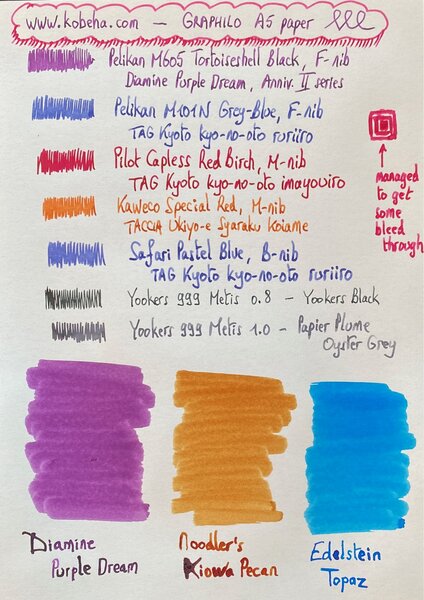 www.kobeha.com — GRAPHILO A5 paper
Pelikan M605 Tortoiseshell Black, F-nib
Diamine Purple Dream, Anniv. II series
Pelikan M101N Grey-Blue, F-nib
TAG Kyoto kyo-no-oto ruriiro
Pilot Capless Red Birch, M-nib
TAG Kyoto kyo-no-oto imayouiro
Kaweco Special Red, M-nib
TACCIA Ukiyo-e Syaraku Koiame
Safari Pastel Blue, B-nib
TAG Kyoto kyo-no-oto ruriiro
Yookers 999 Metis 0.8 — Yookers Black
Yookers 999 Metis 1.0 — Papier Plume
Oyster Grey
managed
to get
some
bleed
through
Diamine
Purple Dream
Noodler's
Kiowa Pecan
Edelstein
Topaz